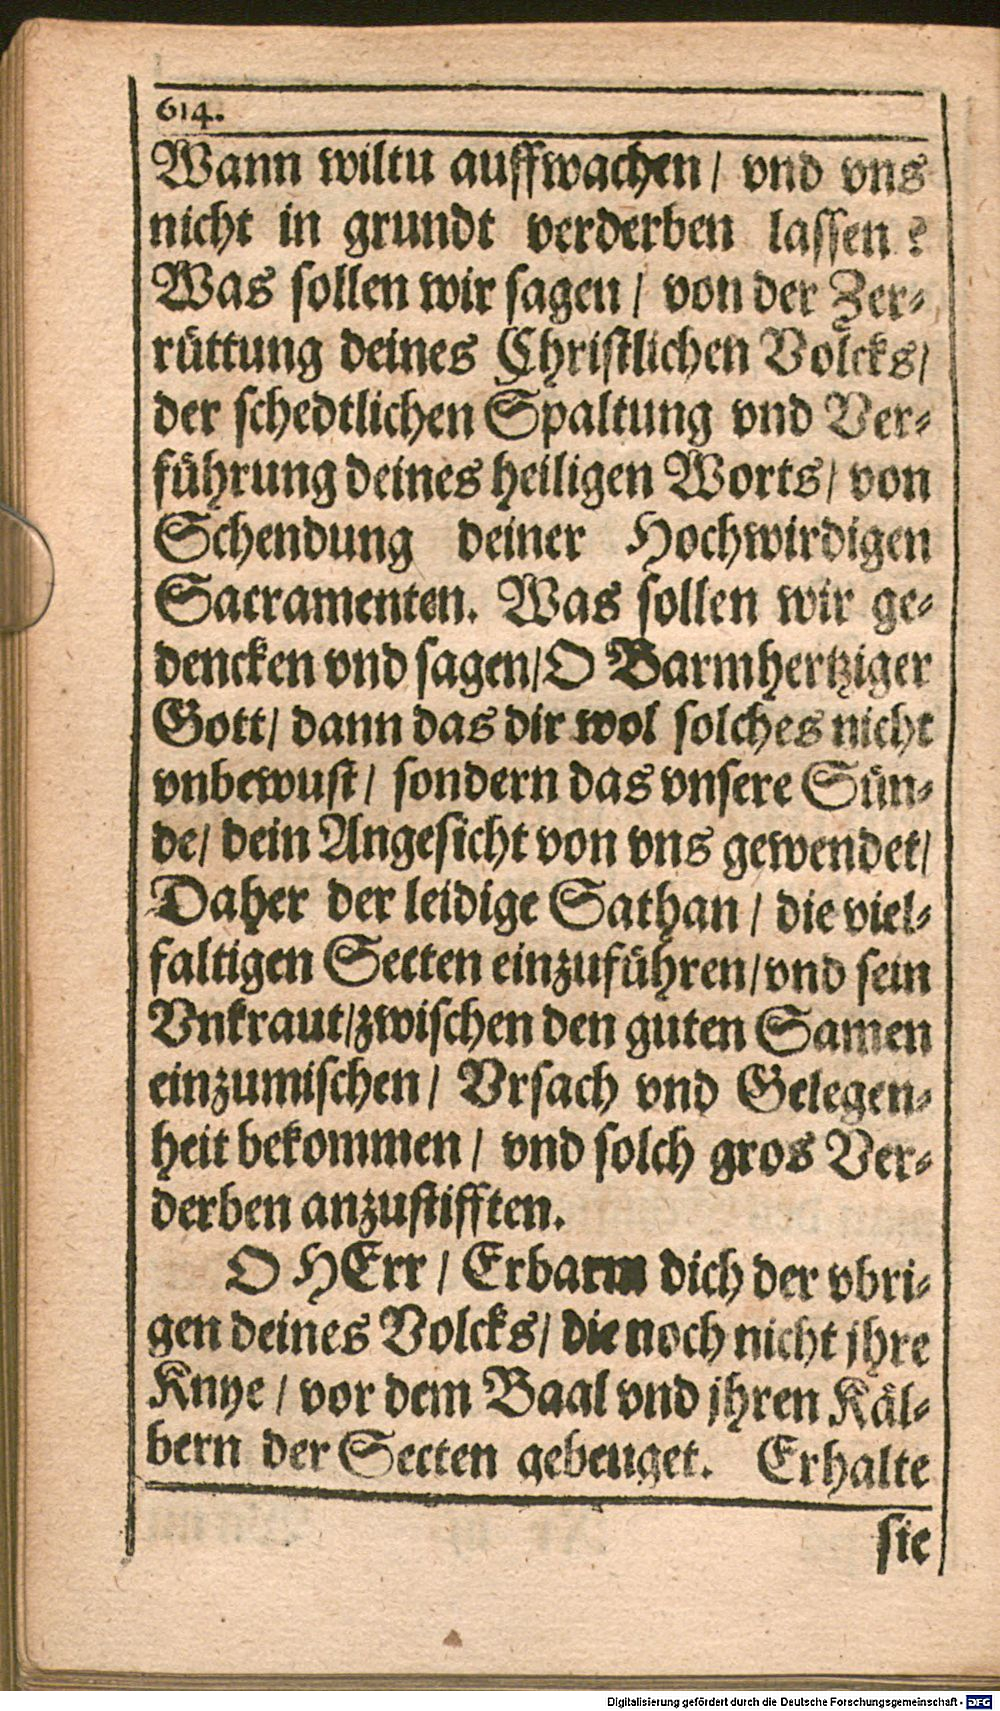 614.
Wann wiltu auffwachen / vnd vns
nicht in grundt verderben lassen?
Was sollen wir sagen / von der Zer-
rüttung deines Christlichen Volcks /
der schedtlichen Spaltung vnd Ver-
führung deines heiligen Worts / von
Schendung deiner Hochwirdigen
Sacramenten. Was sollen wir ge-
dencken vnd sagen / O Barmhertziger
Gott / dann das dir wol solches nicht
vnbewust / sondern das vnsere Sün-
de / dein Angesicht von vns gewendet /
Daher der leidige Sathan / die viel-
faltigen Secten einzuführen / vnd sein
Vnkraut / zwischen den guten Samen
einzumischen / Vrsach vnd Gelegen-
heit bekommen / vnd solch gros Ver-
derben anzustifften.
O HErr / Erbarm dich der vbri-
gen deines Volcks / die noch nicht jhre
Knye / vor dem Baal vnd jhren Käl-
bern der Secten gebeuget. Erhalte
sie
Digitalisierung gefördert durch die Deutsche Forschungsgemeinschaft - DFG